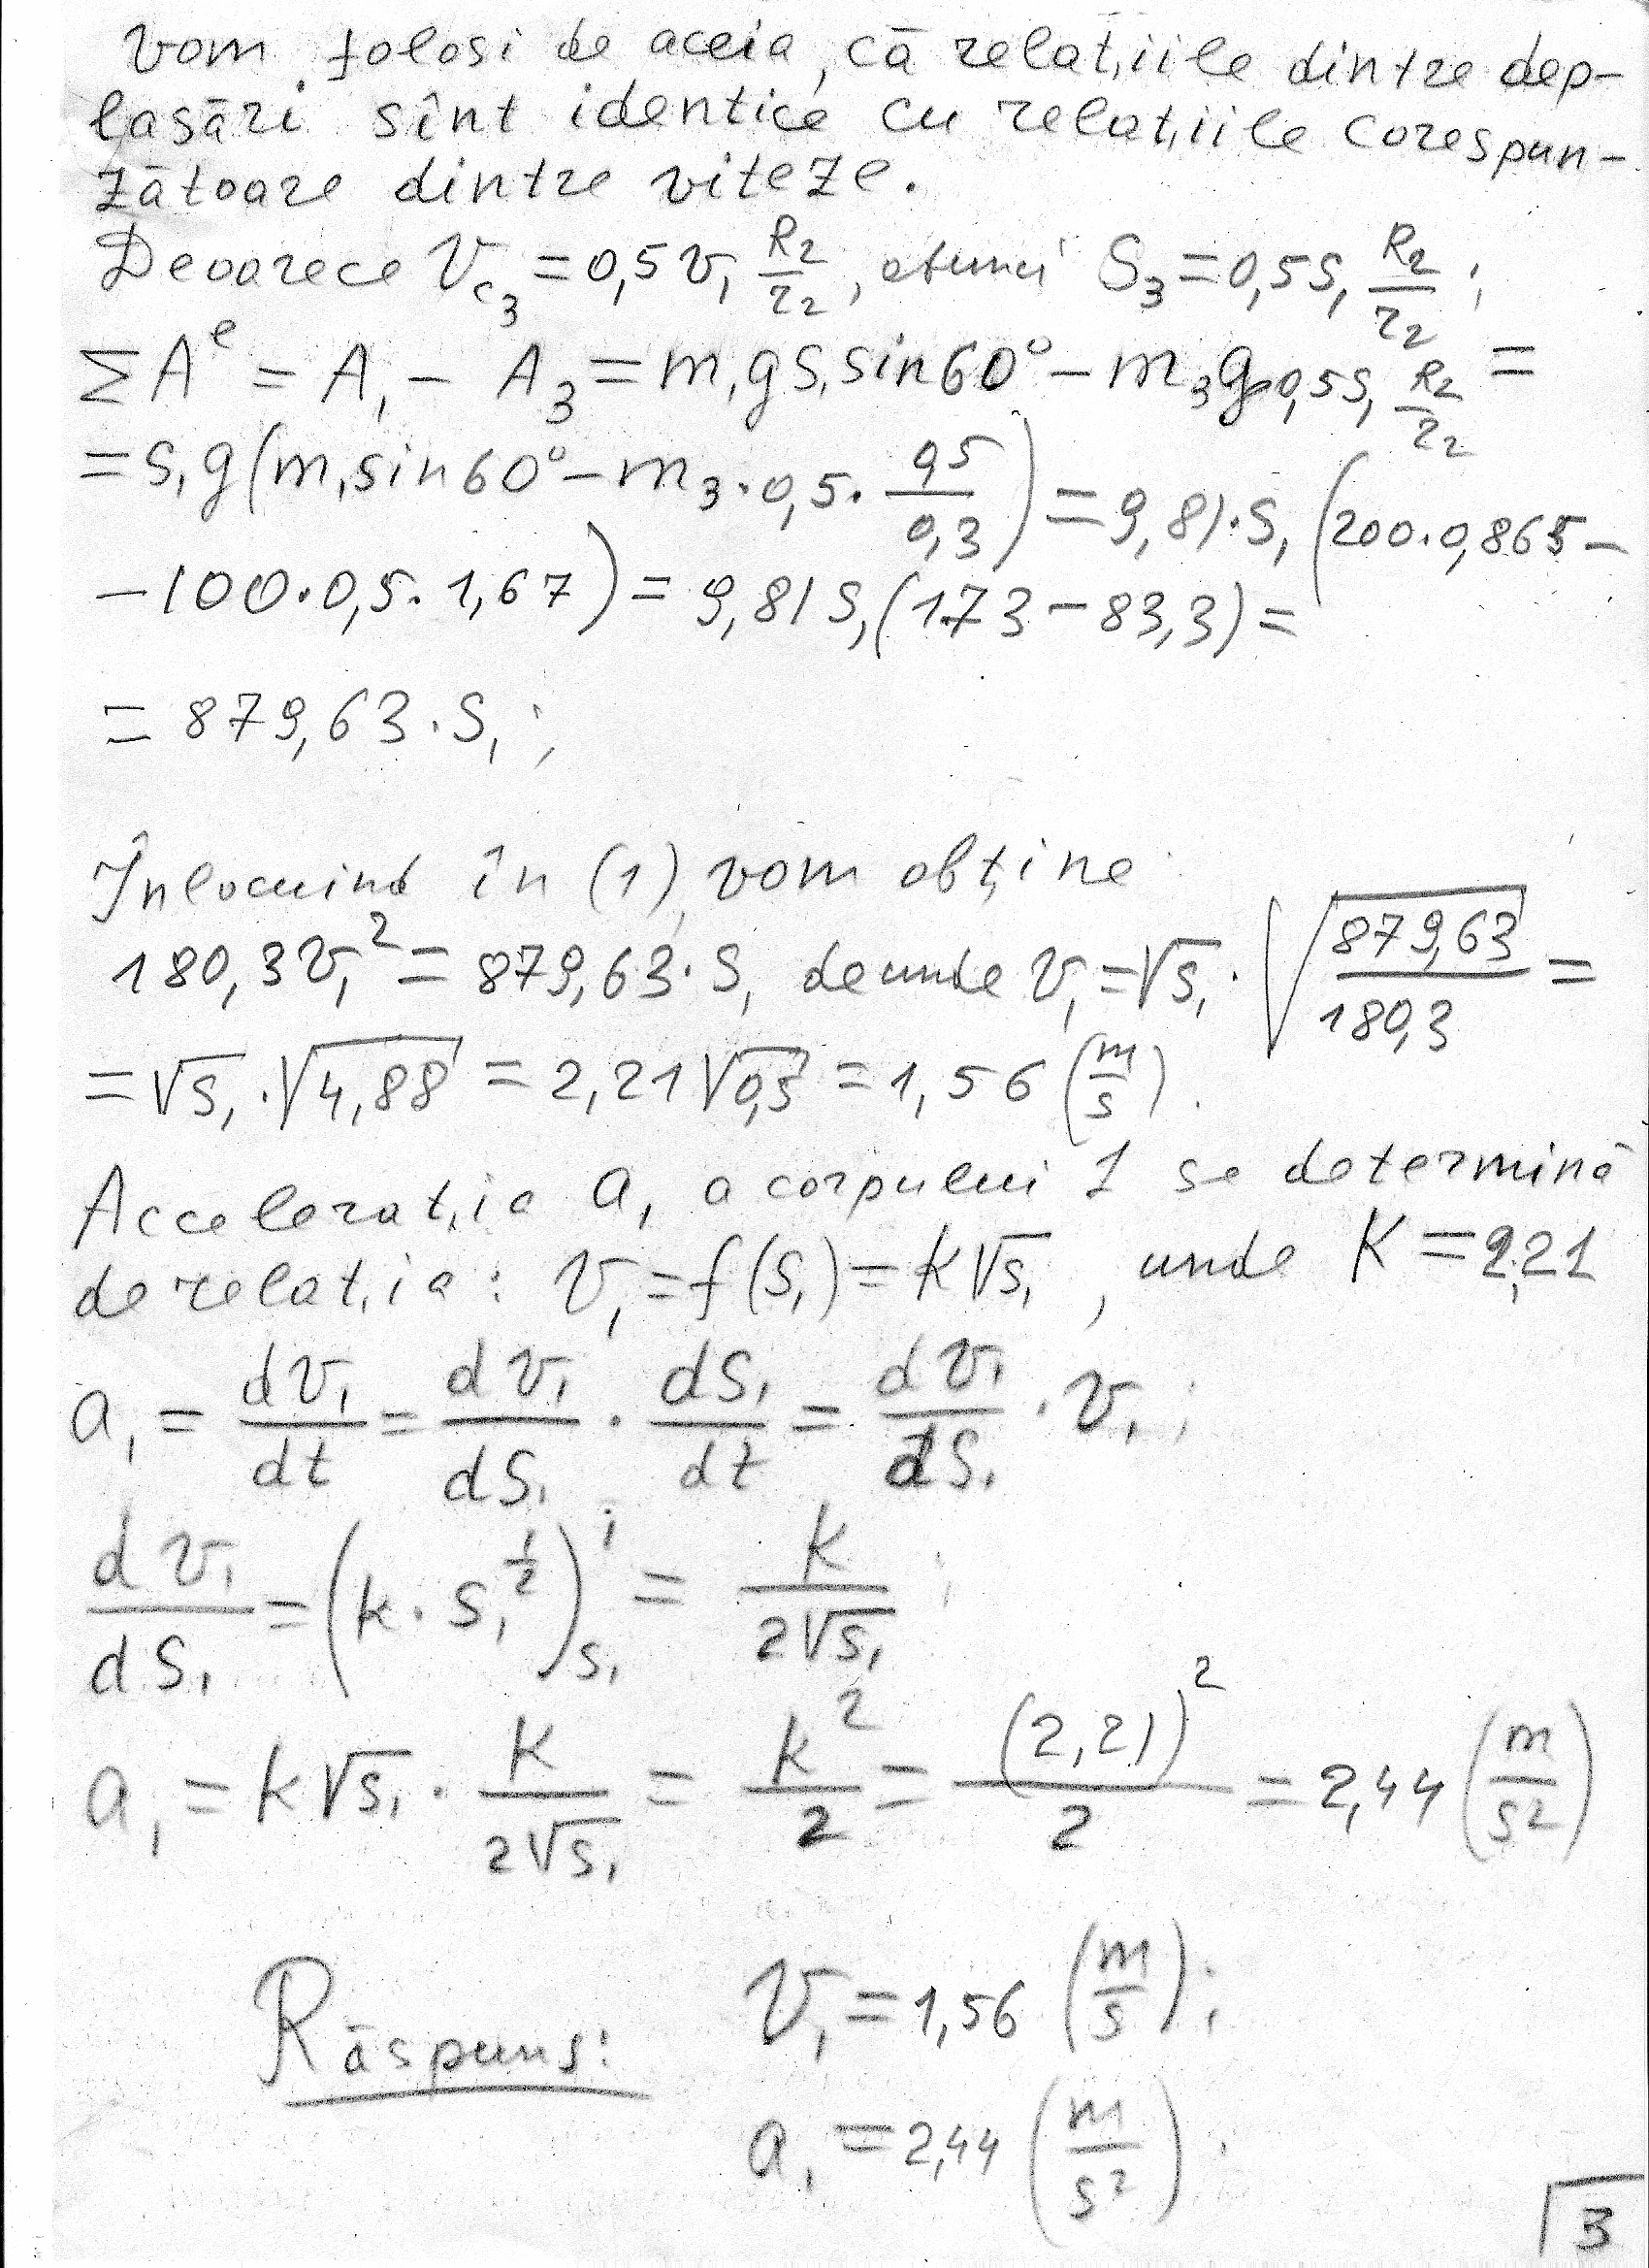 Vom folosi de aceia, că relațiile dintre dep-
lasări sînt identice cu relațiile corespun-
zătoare dintre viteze.
Deoarece V_{c_3} = 0,5 v_1 \frac{R_2}{r_2}, atunci S_3 = 0,5 S_1 \frac{R_2}{r_2};
ΣA^e = A_1 - A_3 = m_1 g S_1 sin60° - m_3 g 0,5 S_1 \frac{R_2}{r_2} =
= S_1 g (m_1 sin60° - m_3 · 0,5 · \frac{0,5}{0,3}) = 9,81 · S_1 (200 · 0,865 -
- 100 · 0,5 · 1,67) = 9,81 S_1 (173 - 83,3) =
= 879,63 · S_1;
Înlocuind în (1) vom obține
180,3 v_1^2 = 879,63 · S_1 de unde v_1 = √S_1 · \sqrt{\frac{879,63}{180,3}} =
= √S_1 · √4,88 = 2,21 √0,5 = 1,56 (\frac{m}{s}).
Accelerația a_1 a corpului 1 se determină
de relația: v_1 = f(S_1) = k√S_1, unde K = 2,21
a_1 = \frac{dv_1}{dt} = \frac{dv_1}{dS_1} · \frac{dS_1}{dt} = \frac{dv_1}{dS_1} · v_1;
\frac{dv_1}{dS_1} = (k · S_1^{\frac{1}{2}})'_{S_1} = \frac{k}{2√S_1};
a_1 = k√S_1 · \frac{k}{2√S_1} = \frac{k^2}{2} = \frac{(2,21)^2}{2} = 2,44 (\frac{m}{s^2})
Răspuns: v_1 = 1,56 (\frac{m}{s});
a_1 = 2,44 (\frac{m}{s^2}).
3